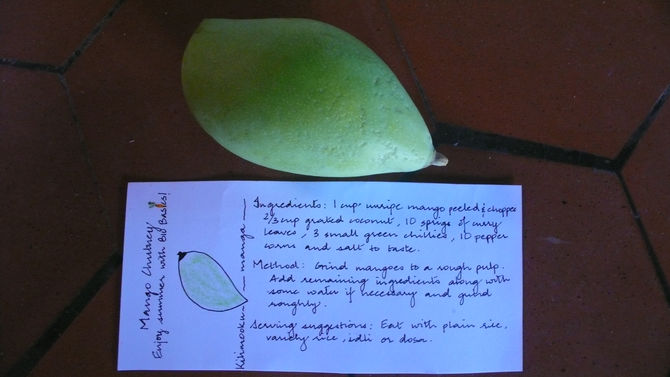 Mango Chutney
Enjoy summer with Bio Basics!
Kilimooku — manga —
Ingredients: 1 cup unripe mango peeled & chopped
2/3 cup grated coconut, 10 sprigs of curry
leaves, 3 small green chillies, 10 pepper
corns and salt to taste.
Method: Grind mangoes to a rough pulp.
Add remaining ingredients along with
some water if necessary and grind
roughly.
Serving suggestions: Eat with plain rice,
variety rice, idli or dosa.